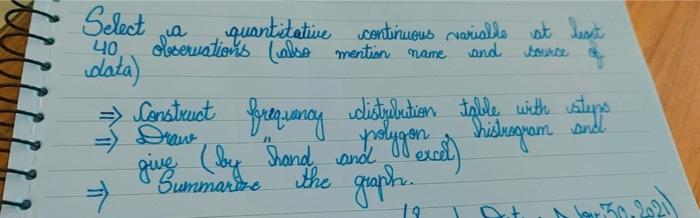 Select a quantitative continuous variable at least
40 observations (also mention name and source of
data)
⇒ Construct frequency distribution table with steps
⇒ Draw " polygon, histrogram and
give (by hand and excel)
⇒ Summarize the graph.
30, 2021)